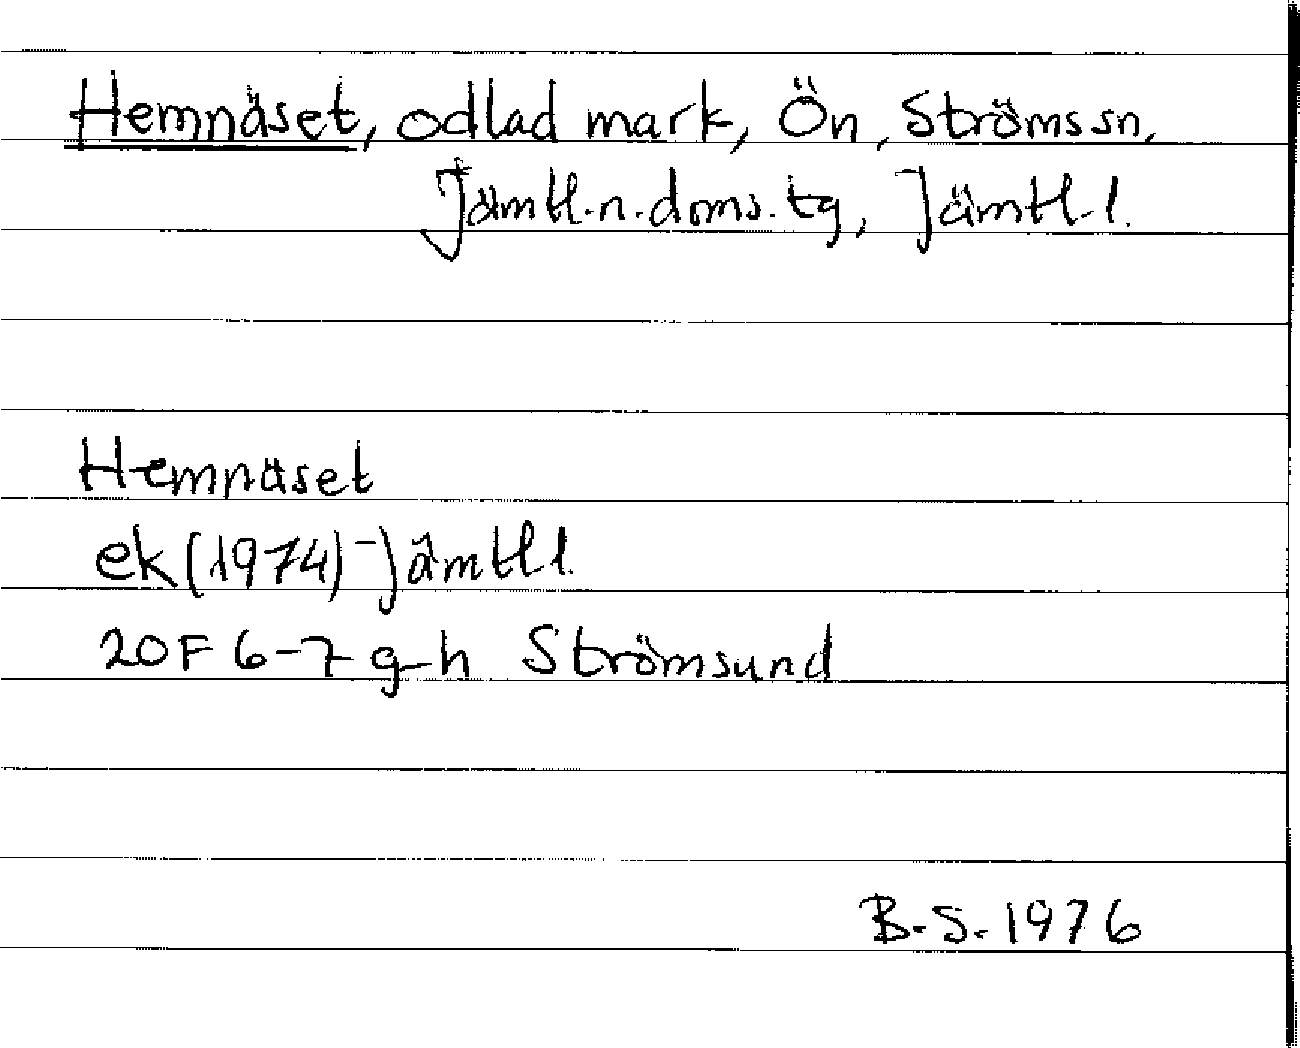 Hemnäset, odlad mark, Ön, Ströms sn,
Jämtl.n.doms.tg, Jämtl.l.
Hemnäset
ek (1974) Jämtl l.
20F 6-7 g-h Strömsund
B.S. 1976